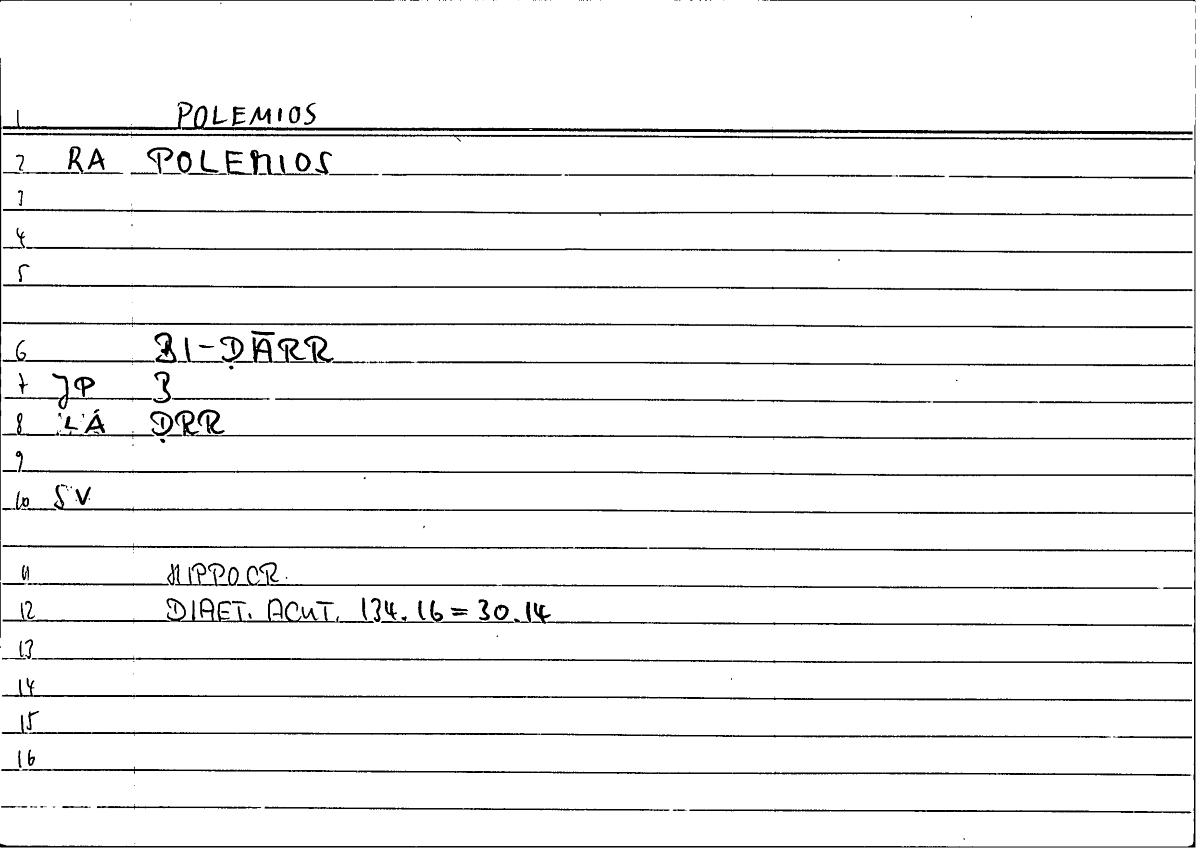 1 POLEMIOS
2 RA POLEMIOS
3
4
5
6 BI-ḌĀRR
7 JP B
8 LA ḌRR
9
10 SV
11 HIPPOCR.
12 DIAET. ACUT. 134.16 = 30.14
13
14
15
16